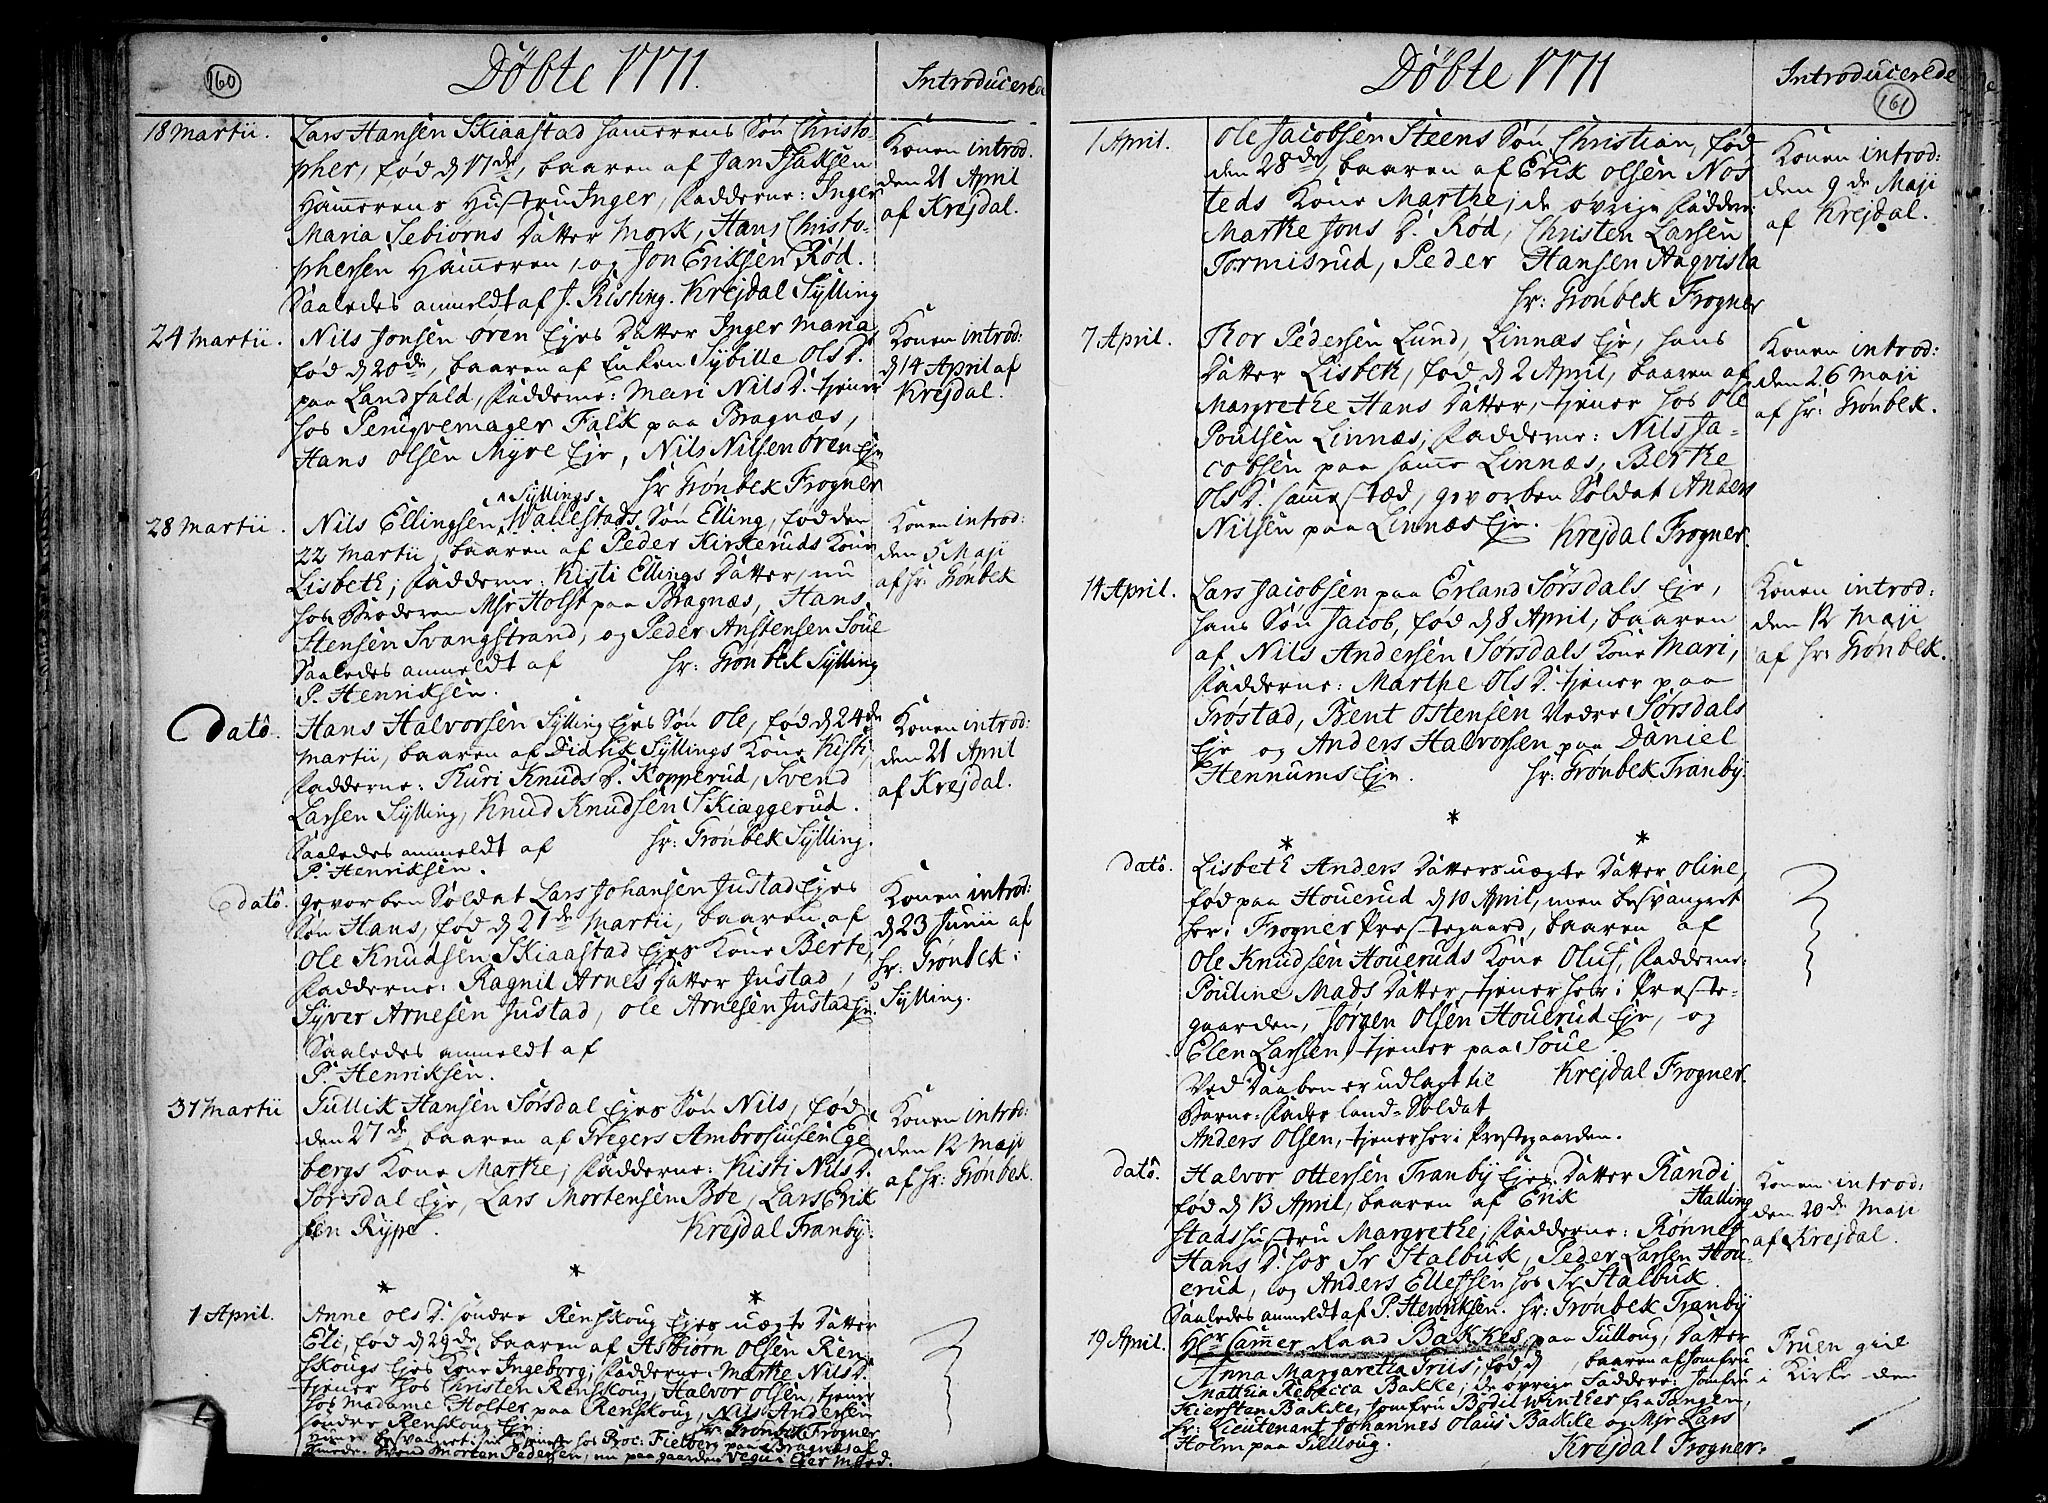 160
Döbte 1771.
Introducerede
18 Martii.
Lars Hansen Skiaastad Hamerens Søn Christo-
pher, fød d 17de, baaren af Jan Isaksen
Hamerens Hustru Inger, Fadderne: Inger
Maria Tebiørns Datter Mork, Hans Christo-
phersen Hameren, og Jon Eriksen Rød.
Saaledes anmeldt af J. Risting. Krejdal Sylling
Konen introd.
den 21 April
af Krejdal.
24 Martii.
Nils Jonsen Ören Ejes Datter Inger Maria
fød d 20de, baaren af Enken Sybille Ols D.
paa Landfald, Fadderne: Mari Nils D. tjener
hos Perugvemager Falk paa Bragnæs,
Hans Olsen Myre Eje, Nils Nilsen Ören Eje
Hr Grönbek Frogner
Konen introd:
d 14 April af
Krejdal.
28 Martii.
Nils Ellingsen Syllings Wallestads Søn Elling, fød den
22 Martii, baaren af Peder Kirkeruds Kone
Lisbeth, Fadderne: Kisti Ellings Datter, nu
hos Broderen Msr Holst paa Bragnæs, Hans
Stensen Svangstrand, og Peder Anstensen Soue
Saaledes anmeldt af Hr: Grönbek Sylling
P. Henriksen.
Konen introd:
den 5 Maji
af Hr: Grönbek
Dato.
Hans Halvorsen Sylling Ejes Søn Ole, fød d 24de
Martii, baaren af Didrik Syllings Kone Kisti,
Fadderne: Kuri Knuds D. Kopperud, Svend
Larsen Sylling, Knud Knudsen Skiæggerud.
Saaledes anmeldt af Hr: Grönbek Sylling.
P. Henriksen.
Konen introd:
den 21 April
af Krejdal.
dato.
gevorben Soldat Lars Johansen Justad Ejes
Søn Hans, fød d 21de Martii, baaren af
Ole Knudsen Skiaastad Ejes Kone Berte,
Fadderne: Ragnil Arnes Datter Justad,
Syver Arnesen Justad, Ole Arnesen Justad Ej.
Saaledes anmeldt af
P. Henriksen.
Konen introd:
d 23 Junii af
Hr: Grönbek:
Sylling.
31 Martii
Gullik Hansen Sørsdal Ejes Søn Nils, fød
den 27de, baaren af Gregers Ambrosiusen Ege
bergs Kone Marthe, Fadderne: Kisti Nils D.
Sørsdal Eje, Lars Mortensen Bøe, Lars Erik
sen Rype. Krejdal Tranby.
Konen introd:
den 12 Maji
af Hr: Grönbek.
* * *
1 April.
Anne Ols D. søndre Renskoug Ejes uægte Datter
Eli, fød d 29de, baaren af Asbiørn Olsen Ren-
skougs Ejes Kone Ingeborg, Fadderne: Marthe Nils D.
tjener hos Christen Renskoug, Halvor Olsen, tjener
hos Madame Holter paa Renskoug, Nils Andersen
søndre Renskoug Eje Hr: Grönbek Frogner
161
Döbte 1771
Introducerede
1 April.
Ole Jacobsen Steens Søn Christian, fød
den 28de, baaren af Erik Olsen Nos
teds Kone Marthe, de øvrige Faddere:
Marthe Jons D. Rød, Christen Larsen
Tormisrud, Peder Hansen Aaqvisla
Hr: Grönbek Frogner
Konen introd:
den 9de Maji
af Krejdal.
7 April.
Thor Pedersen Lund, Linnæs Eje, hans
Datter Lisbeth, fød d 2 April, baaren af
Margrethe Hans Datter, tjener hos Ole
Poulsen Linnæs, Fadderne: Nils Ja-
cobsen paa samme Linnæs, Berthe
Ols D. sammested, gevorben Soldat Anders
Nilsen paa Linnæs Eje. Krejdal Frogner.
Konen introd:
den 26 Maji
af Hr: Grönbek.
14 April.
Lars Jacobsen paa Erland Sørsdals Eje,
hans Søn Jacob, fød d 8 April, baaren
af Nils Andersen Sørsdals Kone Mari,
Fadderne: Marthe Ols D. tjener paa
Grøstad, Bent Ostensen Vedre Sørsdals
Eje og Anders Halvorsen paa Daniel
Hennums Eje. Hr: Grönbek Tranby
Konen introd:
den 12 Maji
af Hr: Grönbek.
* * *
dato.
Lisbeth Anders Datters uægte Datter Oline,
fød paa Houerud d 10 April, men besvangert
her i Frogner Præstegaard, baaren af
Ole Knudsen Houeruds Kone Oluf, Fadderne:
Pouline Mads Datter, tjener her i Præste-
gaarden, Jørgen Olsen Houerud Eje, og
Elen Larsen, tjener paa Soue.
Ved Daaben er udlagt til Krejdal Frogner.
Barne-Fader Land-Soldat
Anders Olsen, tjener her i Præstegaarden.
dato.
Halvor Ottersen Tranby Ejes Datter Randi
fød d 13 April, baaren af Erik Halling
stads Hustru Margrethe, Fadderne: Rönnes
Hans D. hos Sr Stalbuk, Peder Larsen Hou-
erud, og Anders Ellefsen hos Sr Stalbuk.
Saaledes anmeldt af P. Henriksen. Hr: Grönbek Tranby
Konen introd:
den 20de Maji
af Krejdal.
19 April.
Hr Cammer Raad Bakkes, paa Gilloug, Datter
Anna Margaretha Friis, fød d , baaren af Jomfru
Matthia Rebecca Bakke, de øvrige Faddere: Jomfru
Kiersten Bakke, Jomfru Bodil Winther fra Tangen,
Hr: Lieutenant Johannes Olaus Bakke og Msr Lars
Holm paa Gilloug. Krejdal Frogner.
Fruen giik
i Kirke den